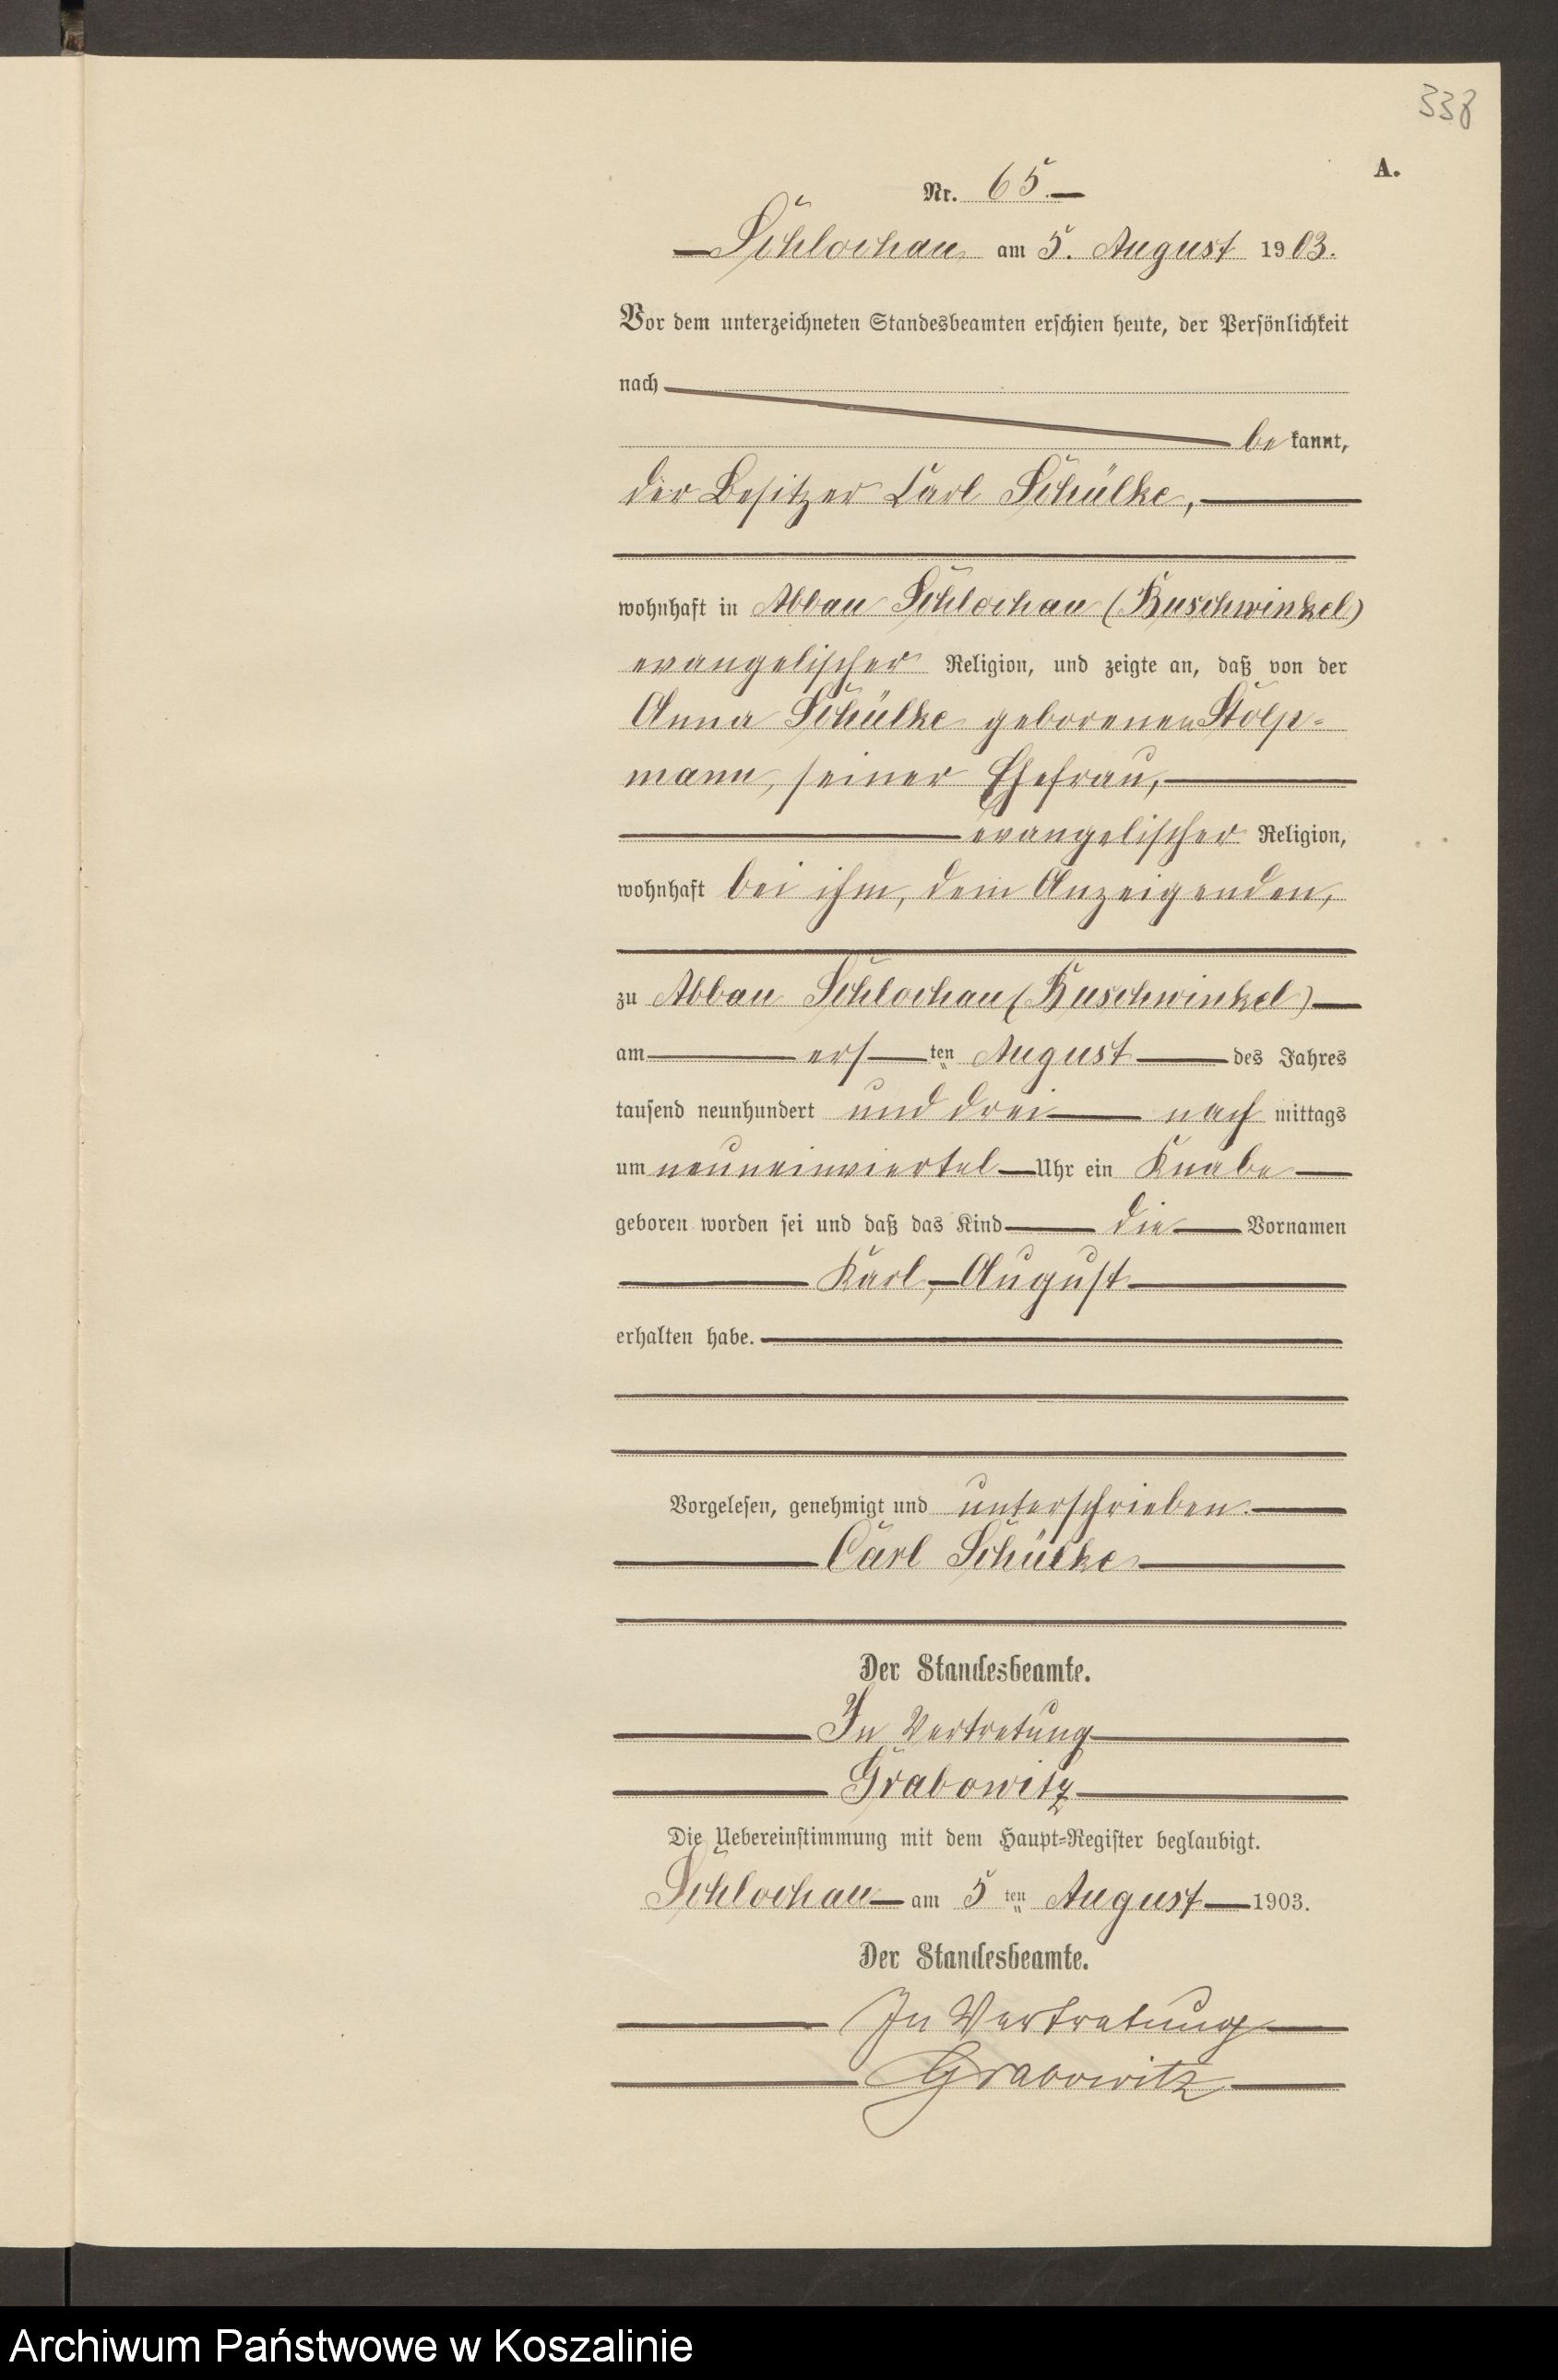 338
A.
Nr. 65.
Schlochau am 5. August 1903.
Vor dem unterzeichneten Standesbeamten erschien heute, der Persönlichkeit
nach
be kannt,
der Besitzer Carl Schülke,
wohnhaft in Abbau Schlochau (Buschwinkel)
evangelischer Religion, und zeigte an, daß von der
Anna Schülke geborenen Stolp-
mann, seiner Ehefrau,
evangelischer Religion,
wohnhaft bei ihm, dem Anzeigenden,
zu Abbau Schlochau (Buschwinkel)
am ers ten August des Jahres
tausend neunhundert und drei nach mittags
um neuneinviertel Uhr ein Knabe
geboren worden sei und daß das Kind die Vornamen
Karl, August
erhalten habe.
Vorgelesen, genehmigt und unterschrieben.
Carl Schülke
Der Standesbeamte.
In Vertretung
Grabowitz
Die Uebereinstimmung mit dem Haupt-Register beglaubigt.
Schlochau am 5 ten August 1903.
Der Standesbeamte.
In Vertretung
Grabowitz
Archiwum Państwowe w Koszalinie